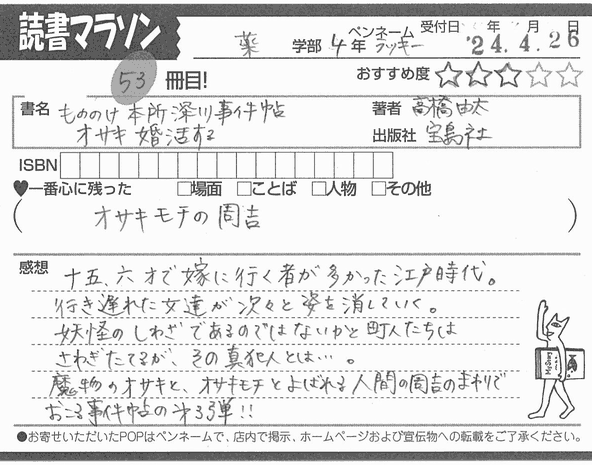 読書マラソン
薬 学部 4年 ペンネーム ラッキー 受付日 年 月 日 '24.4.26
53 冊目! おすすめ度 ☆☆☆☆☆
書名 もののけ本所深川事件帖 著者 高橋由太
オサキ婚活する 出版社 宝島社
ISBN
♥一番心に残った □場面 □ことば □人物 □その他
( オサキモチの周吉 )
感想 十五、六才で嫁に行く者が多かった江戸時代。
行き遅れた女達が次々と姿を消していく。
妖怪のしわざであるのではないかと町人たちは
さわぎたてるが、その真犯人とは…。
魔物のオサキと、オサキモチとよばれる人間の周吉のまわりで
おこる事件帖の第3弾!!
●お寄せいただいたPOPはペンネームで、店内で掲示、ホームページおよび宣伝物への転載をご了承ください。